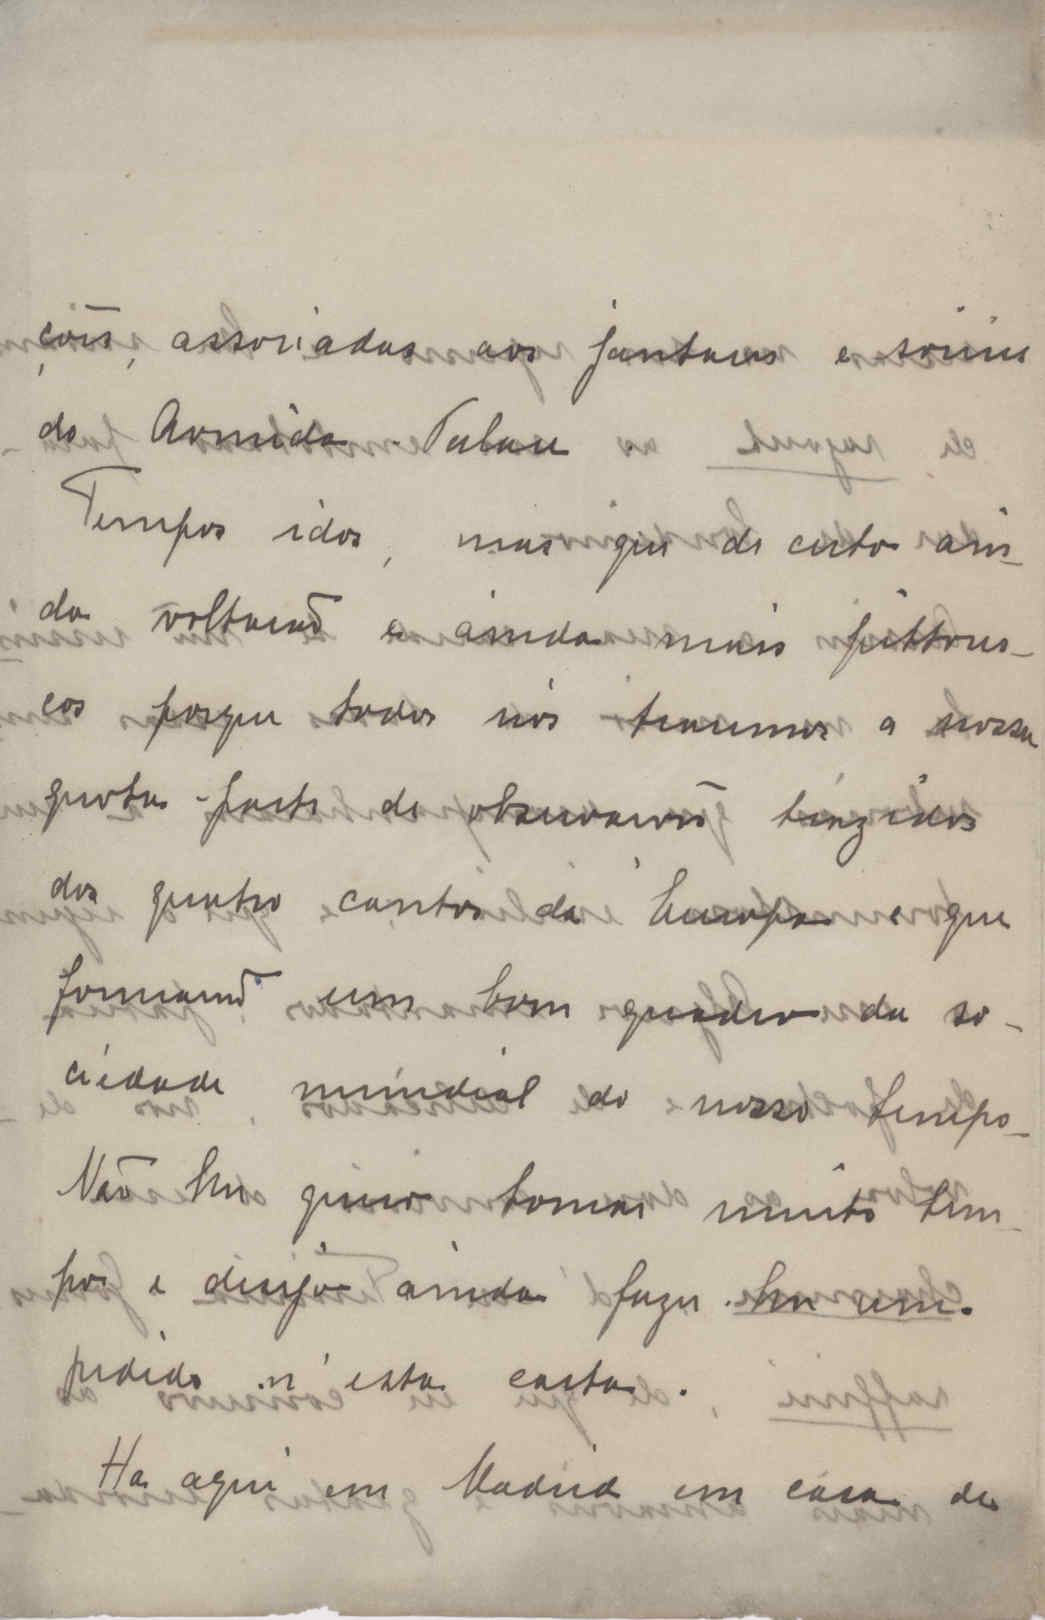 ções, associadas aos jantares e soirées
do Armida-Palace
Tempos idos, mas que de certo ain-
da voltarão e ainda mais pittores-
cos porque todos nós teremos a nossa
quota-parte de observações
dos quatro cantos da Europa e que
formarão um bom quadro da so-
ciedade mundial do nosso tempo-
Não lhe quero tomar muito tem-
po e desejo ainda fazer-lhe um
pedido n'esta carta.
Ha aqui em Madrid em casa de